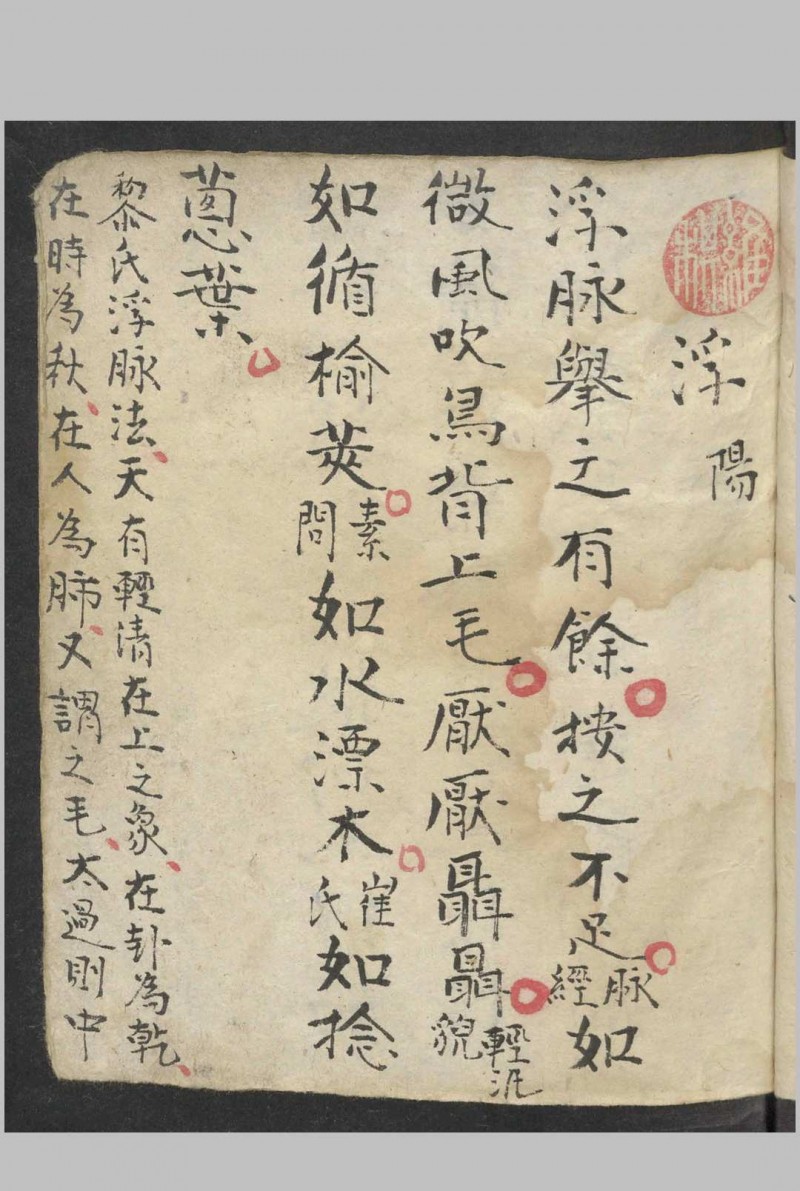 浮陽
浮脉舉之有餘按之不足脉經如
微風吹鳥背上毛厭厭聶聶輕汎貌
如循榆莢素問如水漂木崔氏如捻
蔥葉
黎氏浮脉法天有輕清在上之象在卦為乾
在時為秋在人為肺又謂之毛太過則中